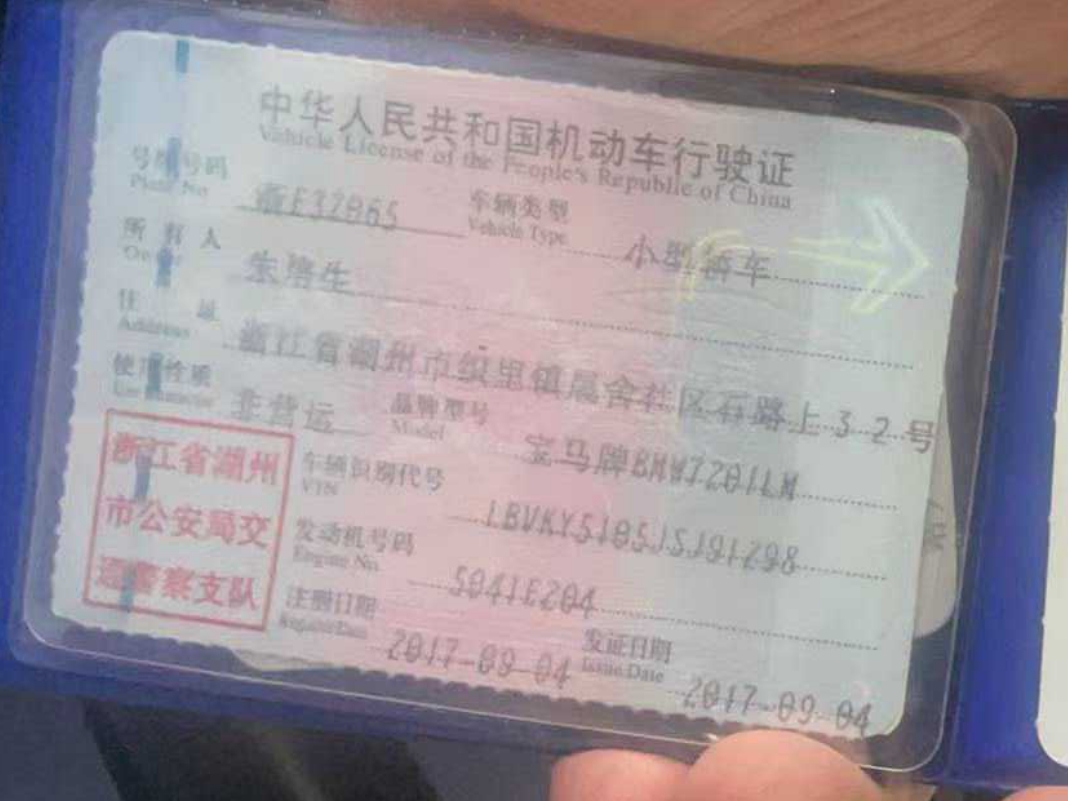 中华人民共和国机动车行驶证
Vehicle License of the People's Republic of China
号牌号码 浙E32065 车辆类型 小型轿车
Plate No. Vehicle Type
所有人 朱培生
Owner
住址 浙江省湖州市织里镇晟舍社区石路上32号
Address
使用性质 非营运 品牌型号 宝马牌BMW7201LM
Use Character Model
浙江省湖州
市公安局交
通警察支队
车辆识别代号 LBVKY5105JSJ91298
VIN
发动机号码 5041E204
Engine No.
注册日期 2017-09-04 发证日期 2017-09-04
Register Date Issue Date